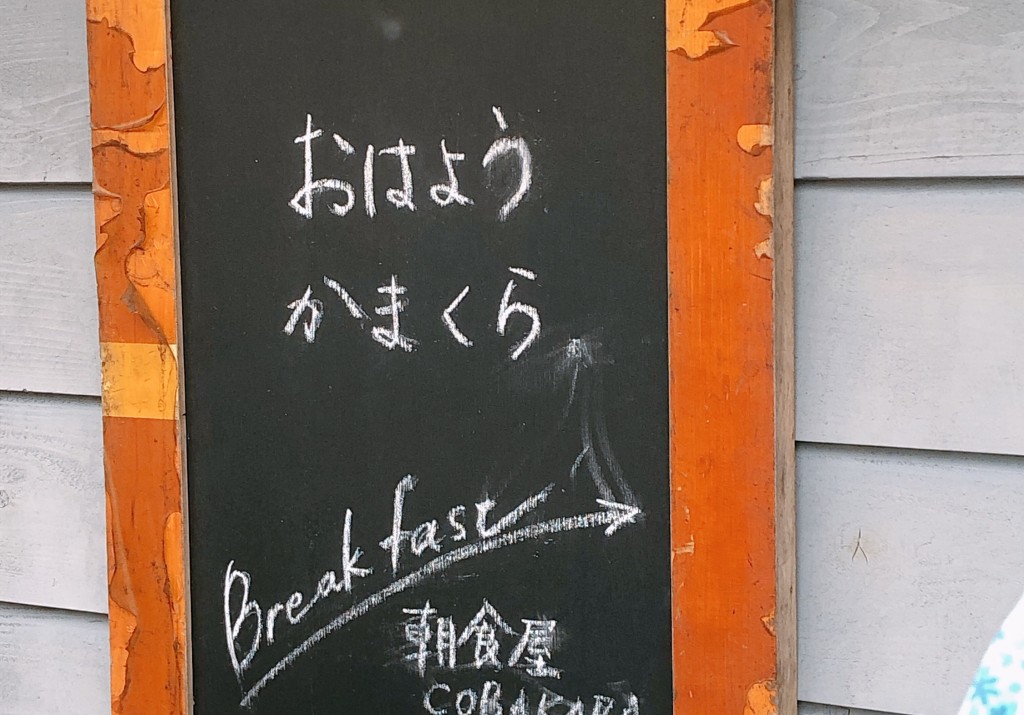 おはよう
かまくら
Breakfast
朝食屋
COBAKABA